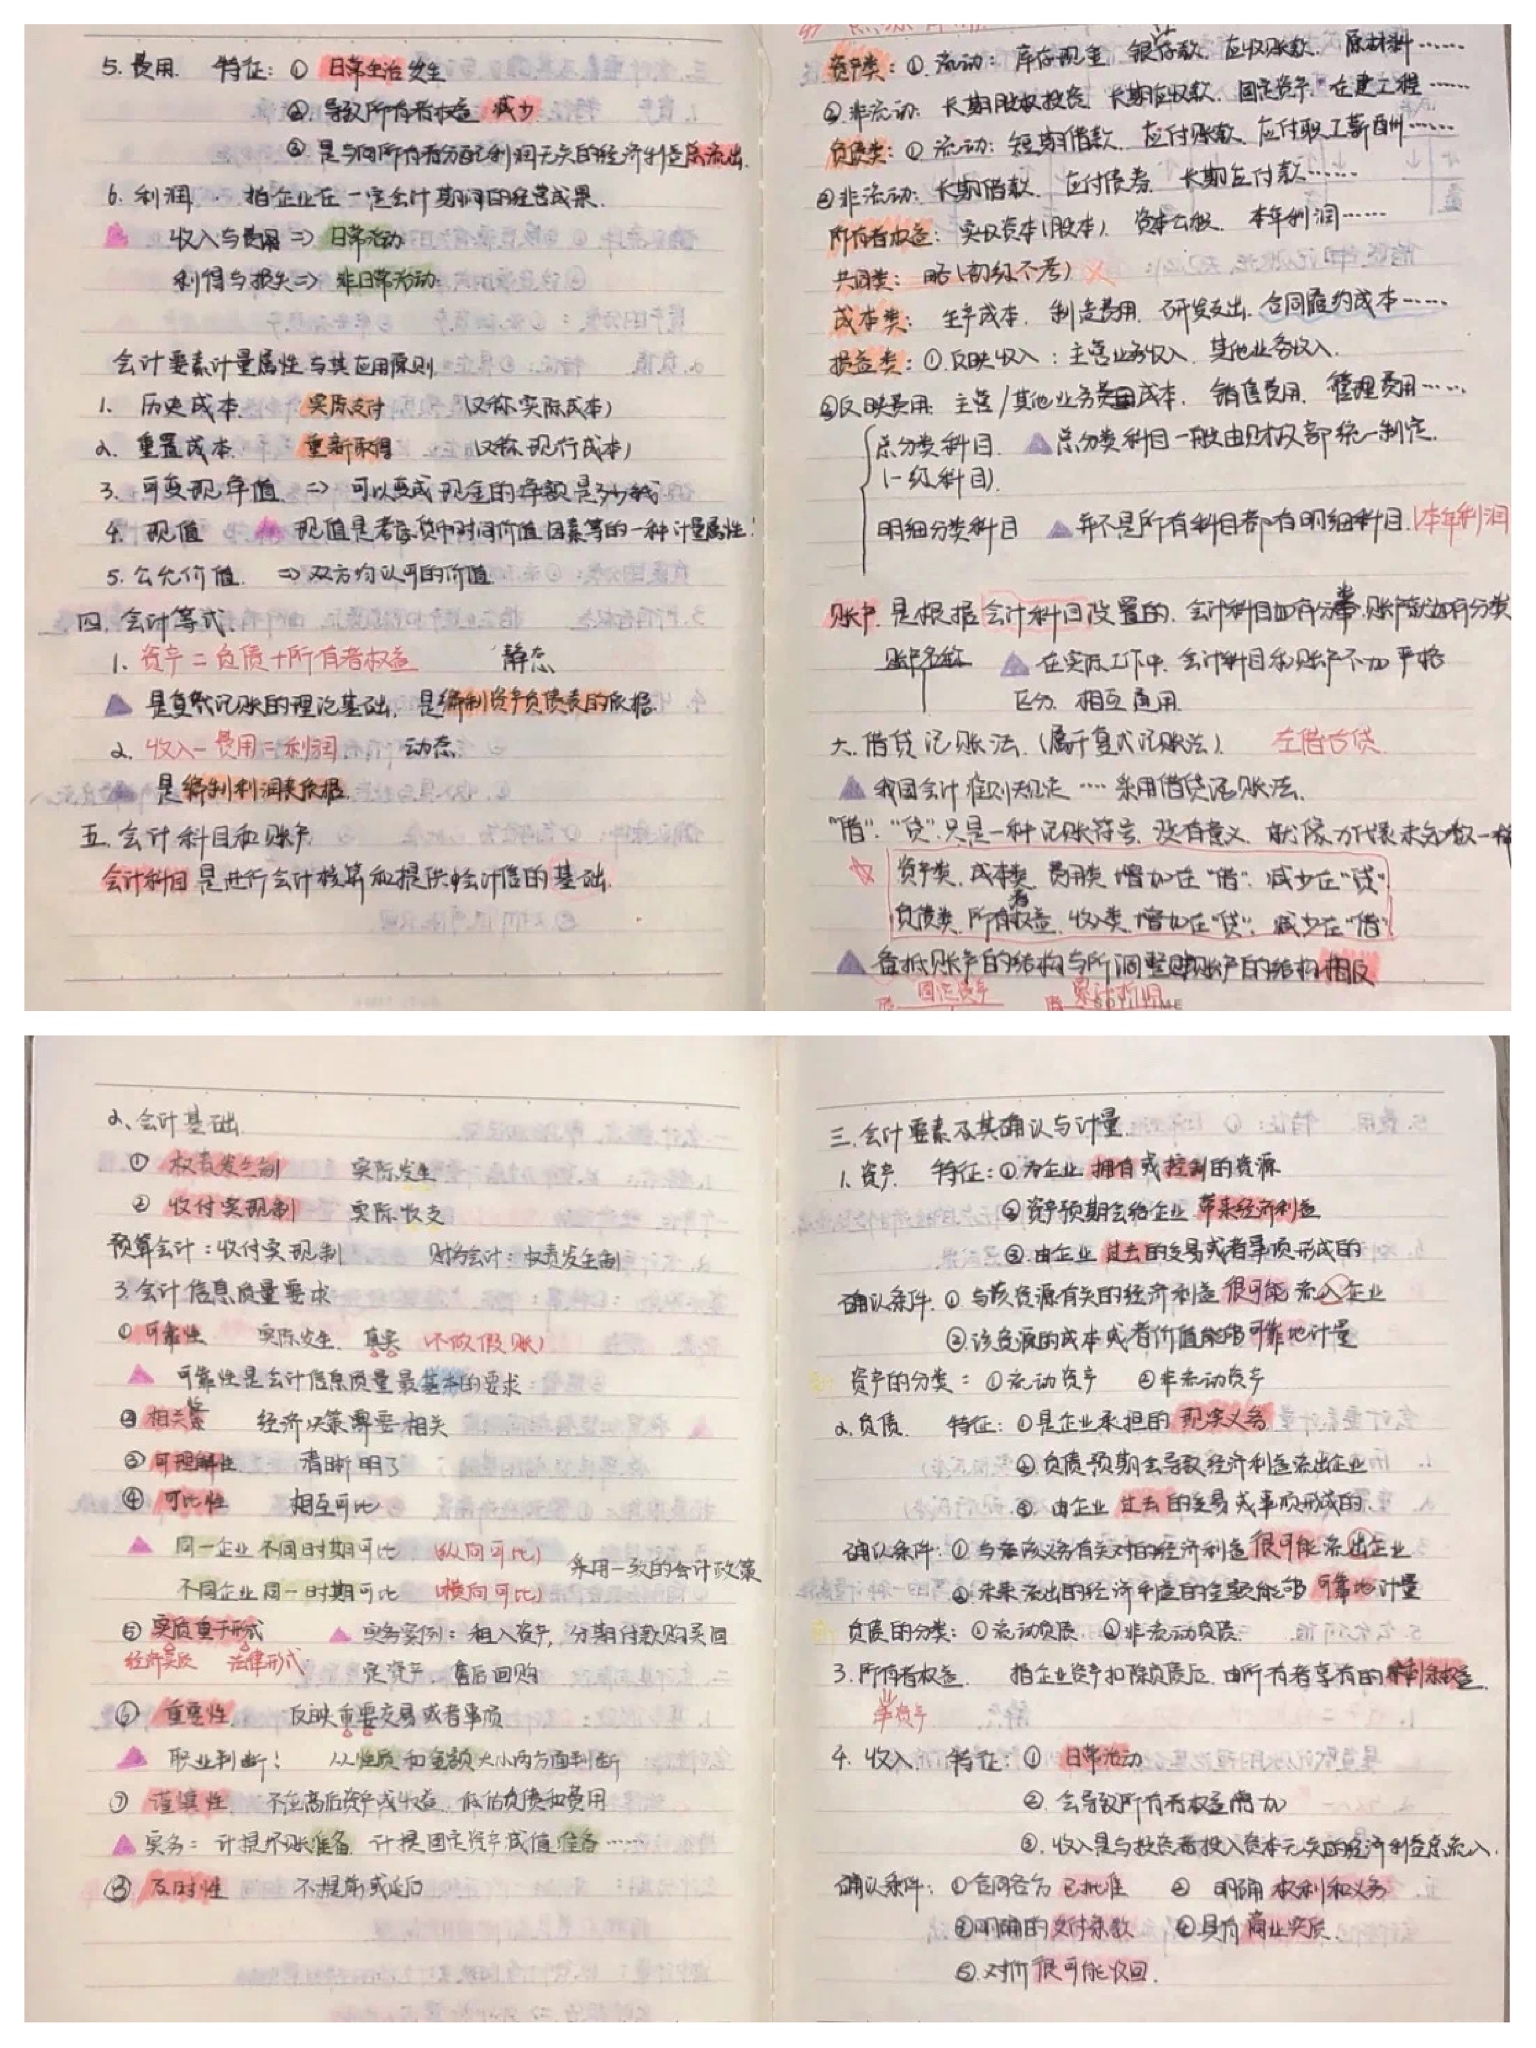 5. 费用. 特征: ① 日常生活发生
②. 导致所有者权益 减少.
③. 是与向所有者分配利润无关的经济利益总流出.
6. 利润. 指企业在一定会计期间的经营成果.
收入与费用 => 日常活动
利得与损失 => 非日常活动.
会计要素计量属性与其应用原则.
1. 历史成本 实际支付 (又称实际成本)
2. 重置成本 重新取得 (又称现行成本)
3. 可变现净值 => 可以变成现金的净额是多少钱
4. 现值 现值是考虑货币时间价值因素等的一种计量属性!
5. 公允价值. => 双方均认可的价值.
四. 会计等式.
1. 资产 = 负债 + 所有者权益 静态
是复式记账的理论基础, 是编制资产负债表的依据.
2. 收入 - 费用 = 利润 动态.
是编制利润表依据.
五. 会计科目和账户
会计科目是进行会计核算和提供会计信的基础.
资产类: ①. 流动: 库存现金 银存款. 应收账款. 原材料……
②. 非流动: 长期股权投资 长期应收款. 固定资产. 在建工程……
负债类: ① 流动: 短期借款. 应付账款. 应付职工薪酬……
②非流动: 长期借款. 应付债券. 长期应付款……
所有者权益: 实收资本(股本). 资本公积. 本年利润……
共同类: 略(初级不考) ×
成本类: 生产成本. 制造费用. 研发支出. 合同履约成本……
损益类: ①. 反映收入: 主营业务收入. 其他业务收入.
②反映费用: 主营/其他业务成本. 销售费用. 管理费用……
总分类科目. 总分类科目一般由财政部统一制定.
(一级科目).
明细分类科目 并不是所有科目都有明细科目. (本年利润
账户. 是根据会计科目设置的. 会计科目如有分类. 账户就如有分类
账户名称 在实际工作中. 会计科目和账户不加严格
区分. 相互通用.
六. 借贷记账法. (属于复式记账法). 左借右贷.
我国会计准则规定 …… 采用借贷记账法.
"借". "贷". 只是一种记账符号. 没有意义. 就像 代表未知数一样
☆ 资产类. 成本类. 费用类 增加在"借". 减少在"贷".
负债类. 所有者权益. 收入类. 增加在"贷". 减少在"借".
备抵账户的结构与所调整账户的结构相反
固定资产 累计折旧
2、会计基础
① 权责发生制 实际发生
② 收付实现制 实际收支
预算会计: 收付实现制 财务会计: 权责发生制
3. 会计信息质量要求
① 可靠性 实际发生. 真实 (不做假账)
可靠性是会计信息质量最基本的要求:
② 相关性 经济决策需要相关
③ 可理解性. 清晰明了
④ 可比性 相互可比
同一企业不同时期可比 (纵向可比)
采用一致的会计政策
不同企业同一时期可比 (横向可比)
⑤ 实质重于形式 实务案例: 租入资产, 分期付款购买固
经济实质 法律形式 定资产. 售后回购
⑥ 重要性 反映重要交易或者事项
职业判断! 从性质和金额大小两方面判断
⑦ 谨慎性 不应高估资产或收益. 低估负债和费用
实务: 计提坏账准备. 计提固定资产减值准备……
⑧ 及时性 不提前或延后
三. 会计要素及其确认与计量.
1. 资产. 特征: ①. 为企业 拥有或控制的资源
②资产预期会给企业 带来经济利益
③. 由企业 过去的交易或者事项形成的
确认条件. ① 与该资源有关的经济利益 很可能 流入企业
②. 该资源的成本或者价值能够可靠地计量
资产的分类: ①流动资产 ②非流动资产
2. 负债. 特征: ①是企业承担的 现实义务
②. 负债预期会导致经济利益流出企业
③ 由企业 过去 的交易或事项形成的.
确认条件: ① 与该义务有关的经济利益 很可能 流出企业
② 未来流出的经济利益的金额能够 可靠地计量
负债的分类: ① 流动负债 ②非流动负债.
3. 所有者权益. 指企业资产扣除负债后. 由所有者享有的剩余权益.
净资产
4. 收入. 特征: ① 日常活动
②. 会导致所有者权益增加
③. 收入是与投资者投入资本无关的经济利益总流入.
确认条件: ①合同各方 已批准 ② 明确 权利和义务
③明确的支付条款 ④具有 商业实质.
⑤. 对价 很可能收回.